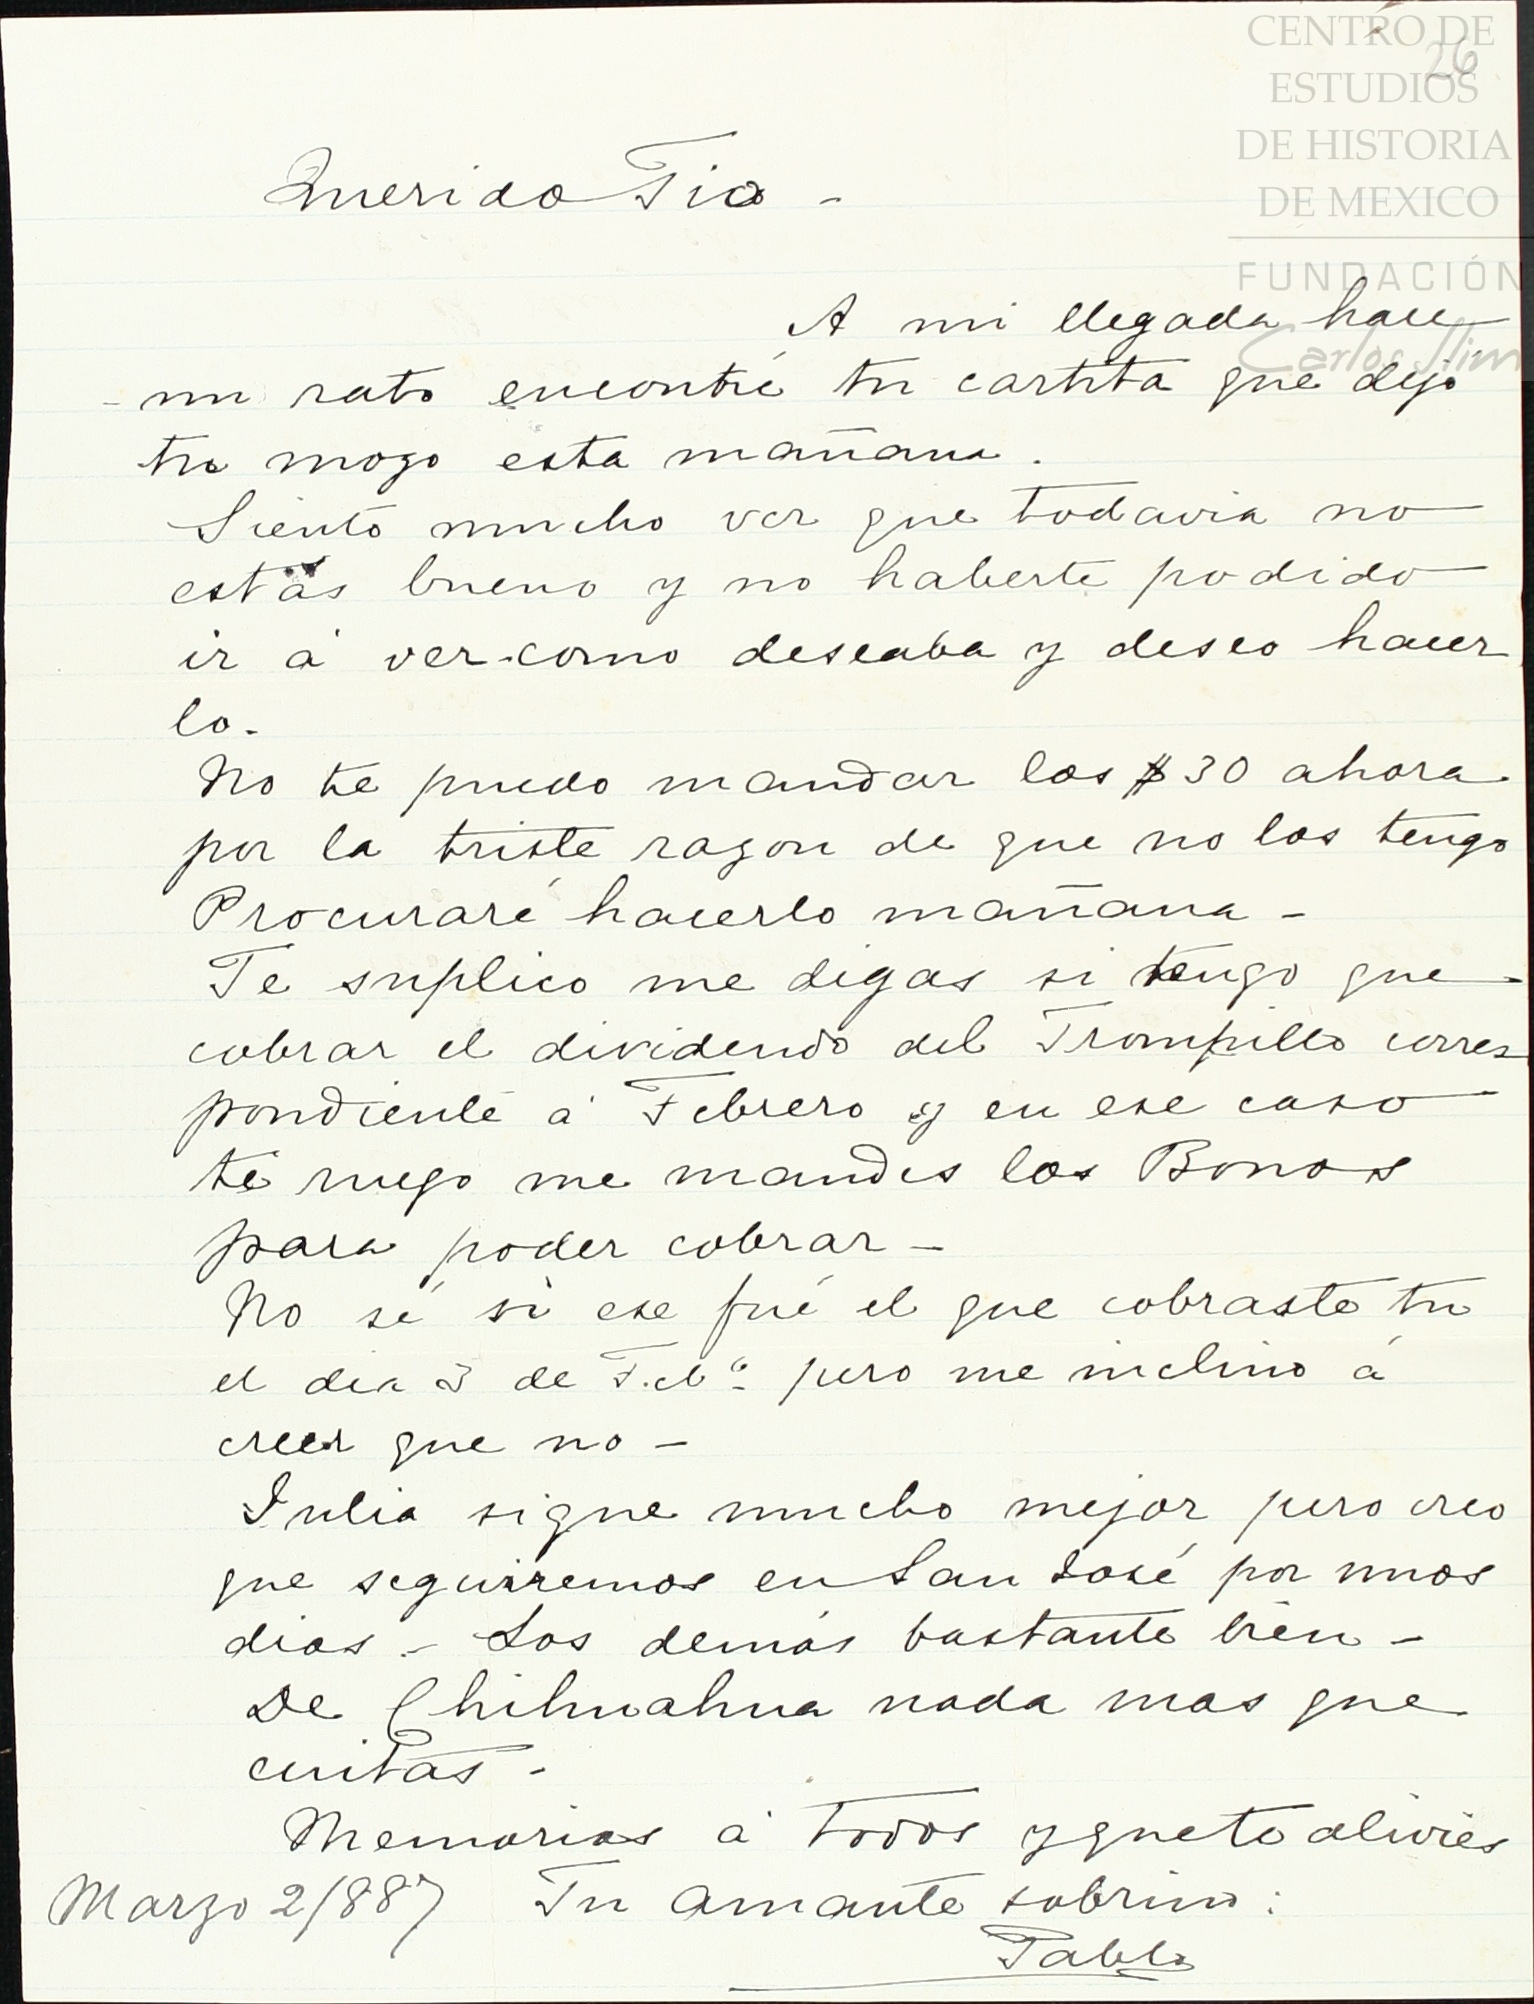 CENTRO DE
ESTUDIOS
DE HISTORIA
DE MEXICO
FUNDACIÓN
Carlos Slim
26
Querido Tio -
A mi llegada hace
un rato encontré tu cartita que dejó
tu mozo esta mañana.
Siento mucho ver que todavia no
estás bueno y no haberte podido
ir á ver como deseaba y deseo hacer
lo.
No te puedo mandar los $30 ahora
por la triste razon de que no los tengo
Procuraré hacerlo mañana -
Te suplico me digas si tengo que
cobrar el dividendo del Trompillo corres
pondiente á Febrero y en ese caso
te ruego me mandes los Bonos
para poder cobrar -
No sé si ese fué el que cobraste tu
el dia 3 de Feb° pero me inclino á
creer que no -
Julia sigue mucho mejor pero creo
que seguirremos en San José por unos
dias - Los demás bastante bien -
De Chihuahua nada mas que
cuitas -
Memorias á todos y que te alivies
Marzo 2/887 Tu amante sobrino:
Pablo